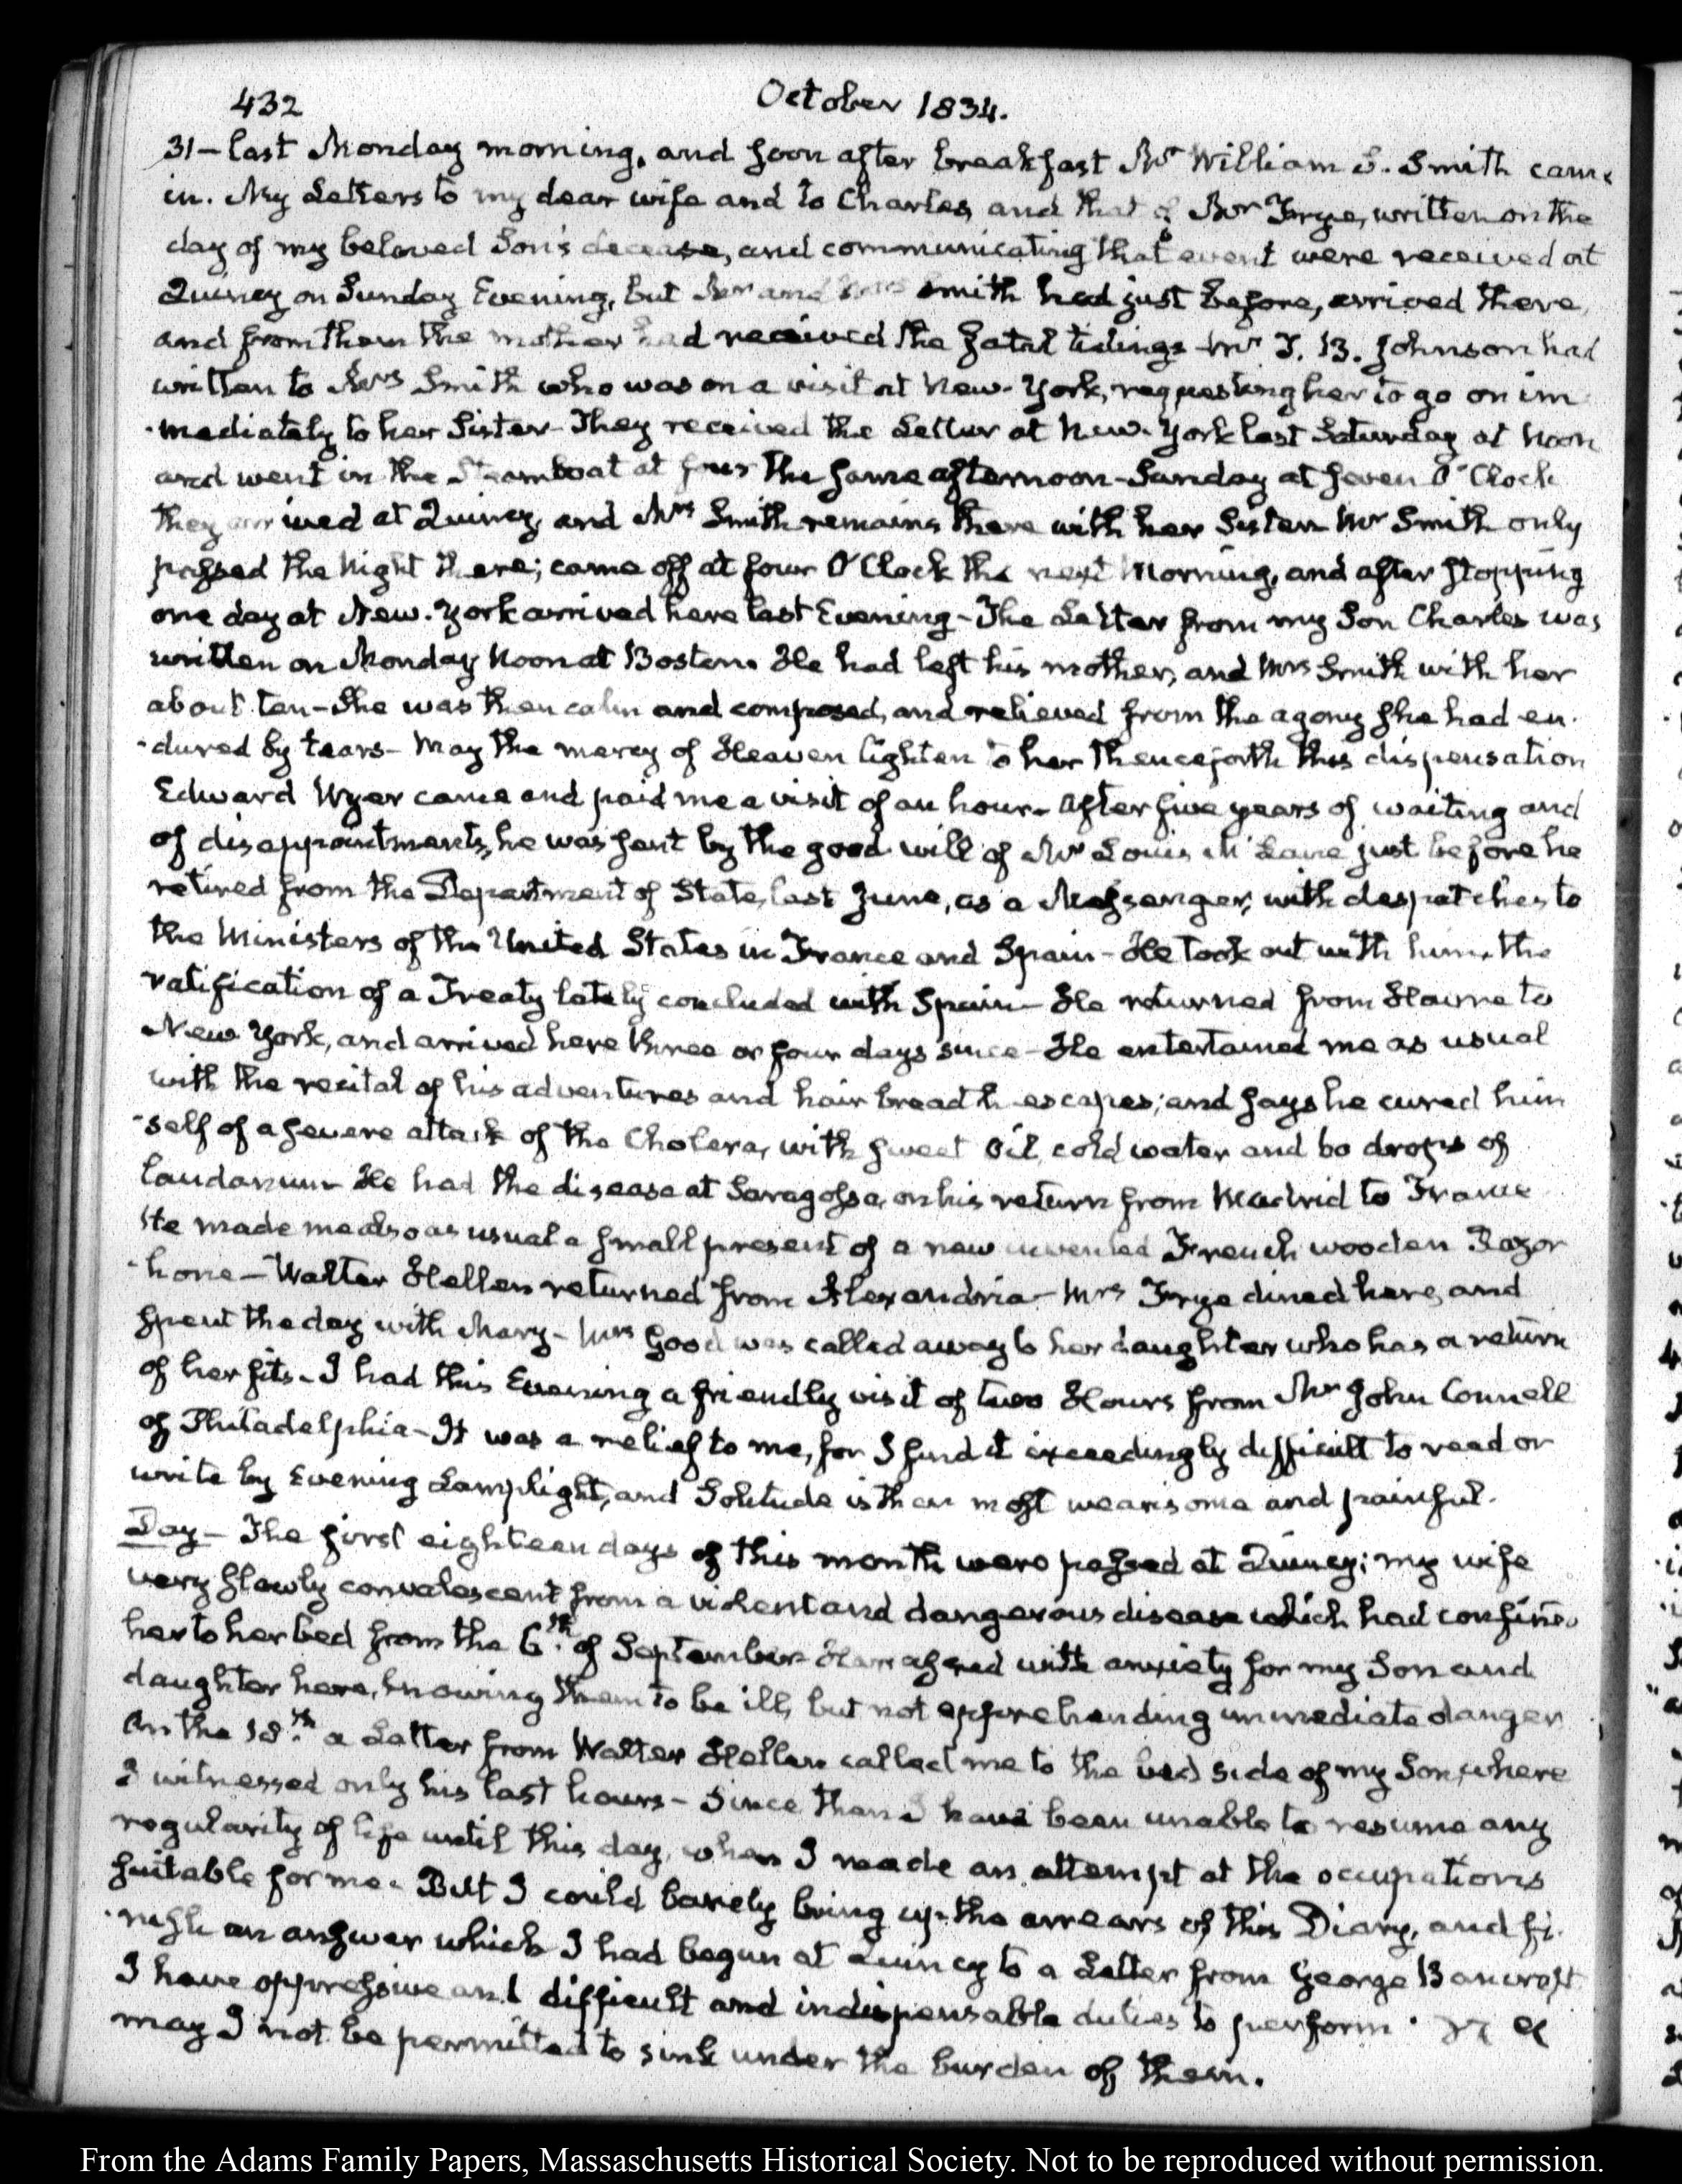 432 October 1834.
31 — last Monday morning, and soon after breakfast Mr William S. Smith came
in. My Letters to my dear wife and to Charles, and that of Mr Frye, written on the
day of my beloved Son's decease, and communicating that event were received at
Quincy on Sunday Evening, but Mr and Mrs Smith had just before, arrived there,
and from them the mother had received the fatal tidings — Mr T. B. Johnson had
written to Mrs Smith who was on a visit at New-York, requesting her to go on im
-mediately to her Sister — They received the Letter at New-York last Saturday at Noon
and went in the Steamboat at four the same afternoon — Sunday at seven O'Clock
they arrived at Quincy, and Mrs Smith remains there with her Sister — Mr Smith only
passed the Night there; came off at four O'Clock the next Morning, and after stopping
one day at New-York arrived here last Evening — The Letter from my Son Charles was
written on Monday Noon at Boston. He had left his mother, and Mrs Smith with her
about ten — She was then calm and composed, and relieved from the agony she had en-
-dured by tears — May the mercy of Heaven lighten to her thenceforth this dispensation
Edward Wyer came and paid me a visit of an hour — After five years of waiting and
of disappointments, he was sent by the good will of Mr Louis McLane just before he
retired from the Department of State, last June, as a Messenger, with despatches to
the Ministers of the United States in France and Spain — He took out with him, the
ratification of a Treaty lately concluded with Spain — He returned from Havre to
New York, and arrived here three or four days since — He entertained me as usual
with the recital of his adventures and hair breadth escapes; and says he cured him
-self of a severe attack of the Cholera, with sweet Oil, cold water and 60 drops of
laudanum — He had the disease at Saragossa, on his return from Madrid to France
He made me also as usual a small present of a new invented French wooden Razor
-hone — Walter Hellen returned from Alexandria — Mrs Frye dined here, and
spent the day with Mary — Mrs Good was called away to her daughter who has a return
of her fits — I had this Evening a friendly visit of two Hours from Mr John Connell
of Philadelphia — It was a relief to me, for I find it exceedingly difficult to read or
write by Evening Lamplight, and Solitude is then most wearisome and painful.
Day — The first eighteen days of this month were passed at Quincy; my wife
very slowly convalescent from a violent and dangerous disease which had confined
her to her bed from the 6th of September — Harrassed with anxiety for my Son and
daughter here, knowing them to be ill, but not apprehending immediate danger
On the 18th a Letter from Walter Hellen called me to the bed side of my Son, where
I witnessed only his last hours — Since then I have been unable to resume any
regularity of life until this day, when I made an attempt at the occupations
suitable for me. But I could barely bring up the arrears of this Diary, and fi-
-nish an answer which I had begun at Quincy to a Letter from George Bancroft
I have oppressive and difficult and indispensable duties to perform.
may I not be permitted to sink under the burden of them.
From the Adams Family Papers, Massachusetts Historical Society. Not to be reproduced without permission.